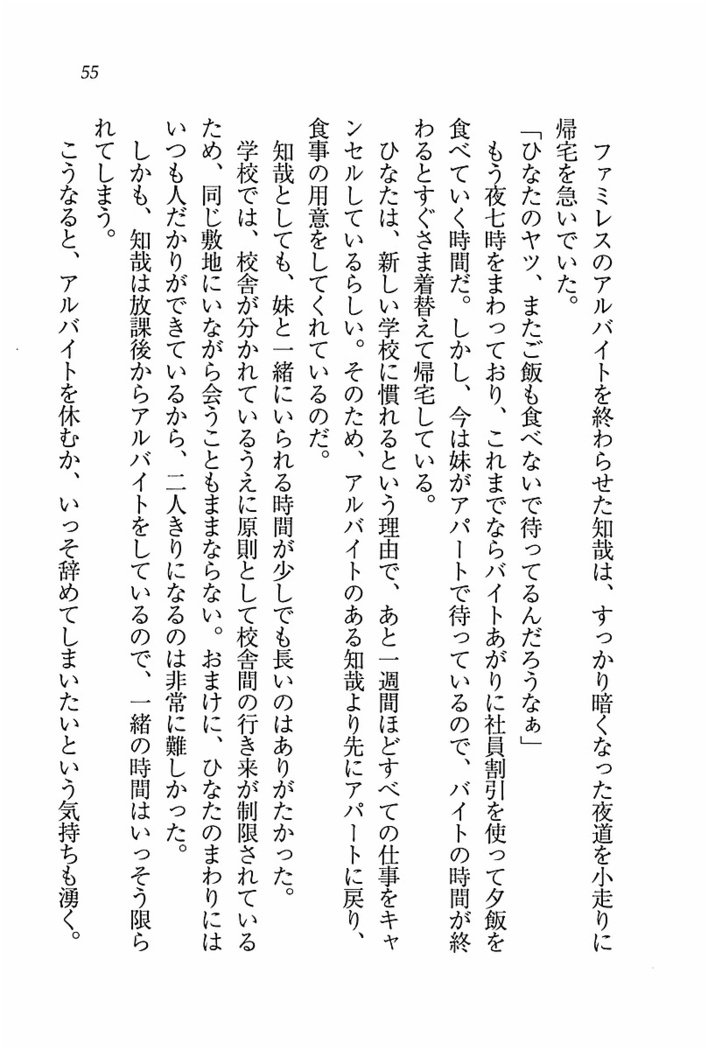 55
ファミレスのアルバイトを終わらせた知哉は、すっかり暗くなった夜道を小走りに
帰宅を急いでいた。
「ひなたのヤツ、またご飯も食べないで待ってるんだろうなぁ」
もう夜七時をまわっており、これまでならバイトあがりに社員割引を使って夕飯を
食べていく時間だ。しかし、今は妹がアパートで待っているので、バイトの時間が終
わるとすぐさま着替えて帰宅している。
ひなたは、新しい学校に慣れるという理由で、あと一週間ほどすべての仕事をキャ
ンセルしているらしい。そのため、アルバイトのある知哉より先にアパートに戻り、
食事の用意をしてくれているのだ。
知哉としても、妹と一緒にいられる時間が少しでも長いのはありがたかった。
学校では、校舎が分かれているうえに原則として校舎間の行き来が制限されている
ため、同じ敷地にいながら会うこともままならない。おまけに、ひなたのまわりには
いつも人だかりができているから、二人きりになるのは非常に難しかった。
しかも、知哉は放課後からアルバイトをしているので、一緒の時間はいっそう限ら
れてしまう。
こうなると、アルバイトを休むか、いっそ辞めてしまいたいという気持ちも湧く。